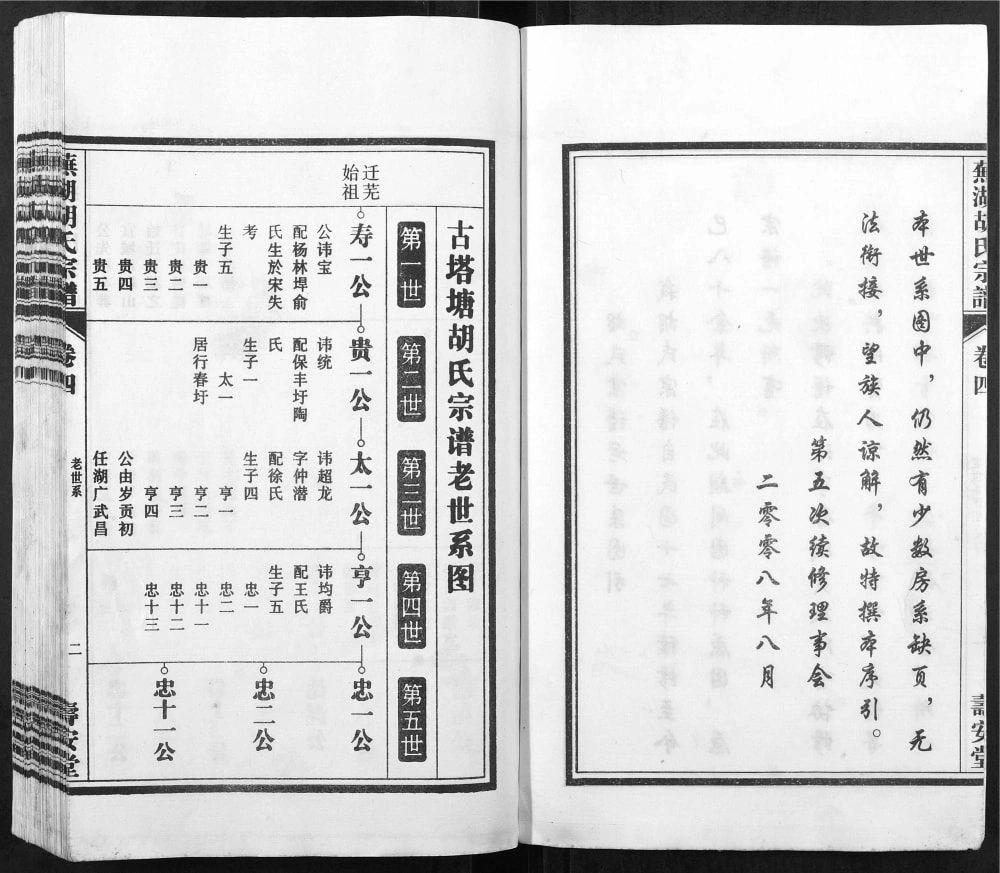 蕪湖胡氏宗譜
卷四
壽安堂
本世系图中，仍然有少数房系缺页，无
法衔接，望族人谅解，故特撰本序引。
第五次续修理事会
二零零八年八月
古塔塘胡氏宗谱老世系图
第一世
第二世
第三世
第四世
第五世
迁芜
始祖
寿一公
贵一公
太一公
亨一公
忠一公
公讳宝
配杨林埠俞
氏生於宋失
考
生子五
贵一
贵二
贵三
贵四
贵五
讳统
配保丰圩陶
氏
生子一
太一
居行春圩
讳超龙
字仲潜
配徐氏
生子四
亨一
亨二
亨三
亨四
公由岁贡初
任湖广武昌
讳均爵
配王氏
生子五
忠一
忠二
忠十一
忠十二
忠十三
忠二公
忠十一公
蕪湖胡氏宗譜
卷四
老世系
二
壽安堂